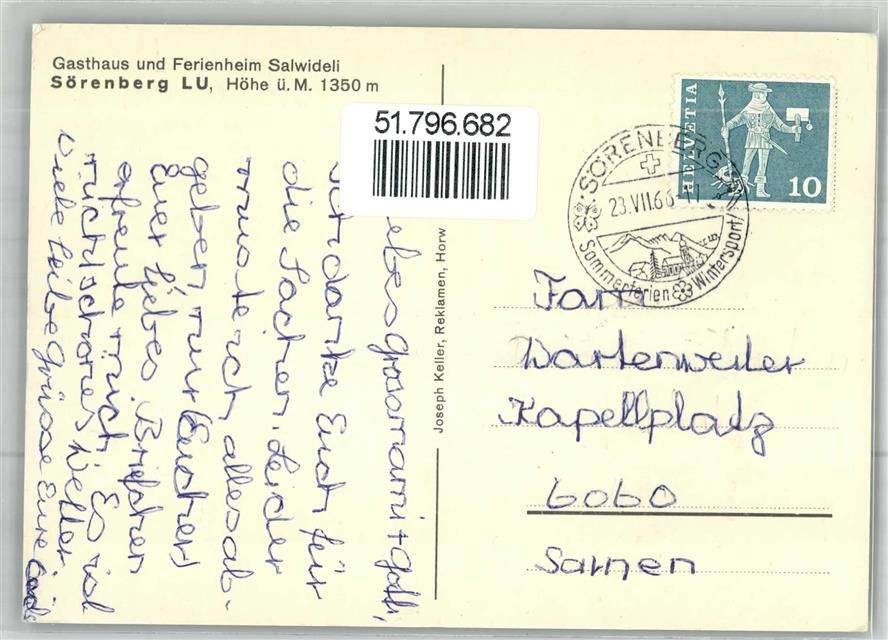 Gasthaus und Ferienheim Salwideli
Sörenberg LU, Höhe ü. M. 1350 m
51.796.682
HELVETIA
10
SÖRENBERG
23.VII.66
Sommerferien Wintersport
Joseph Keller, Reklamen, Horw
Grosmami + Gotti,
Ich danke Euch für
die Sachen. Leider
musste ich alles ab-
geben nur (Eucher)
Euer liebes Briefchen
erfreute mich. Es ist
nicht schönes Wetter.
Viele liebe Grüsse Eure
Fam.
Wartenweiler
Kapellplatz
6060
Sarnen